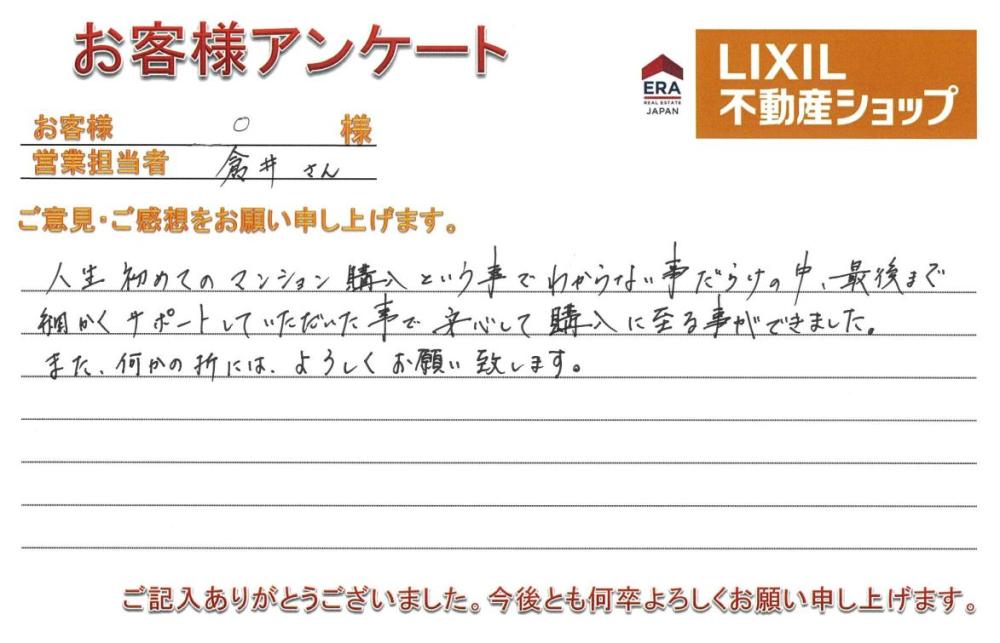 お客様アンケート
ERA
REAL ESTATE
JAPAN
LIXIL
不動産ショップ
お客様 O 様
営業担当者 倉井さん
ご意見・ご感想をお願い申し上げます。
人生初めてのマンション購入という事でわからない事だらけの中、最後まで
細かくサポートしていただいた事で安心して購入に至る事ができました。
また、何かの折には、よろしくお願い致します。
ご記入ありがとうございました。今後とも何卒よろしくお願い申し上げます。